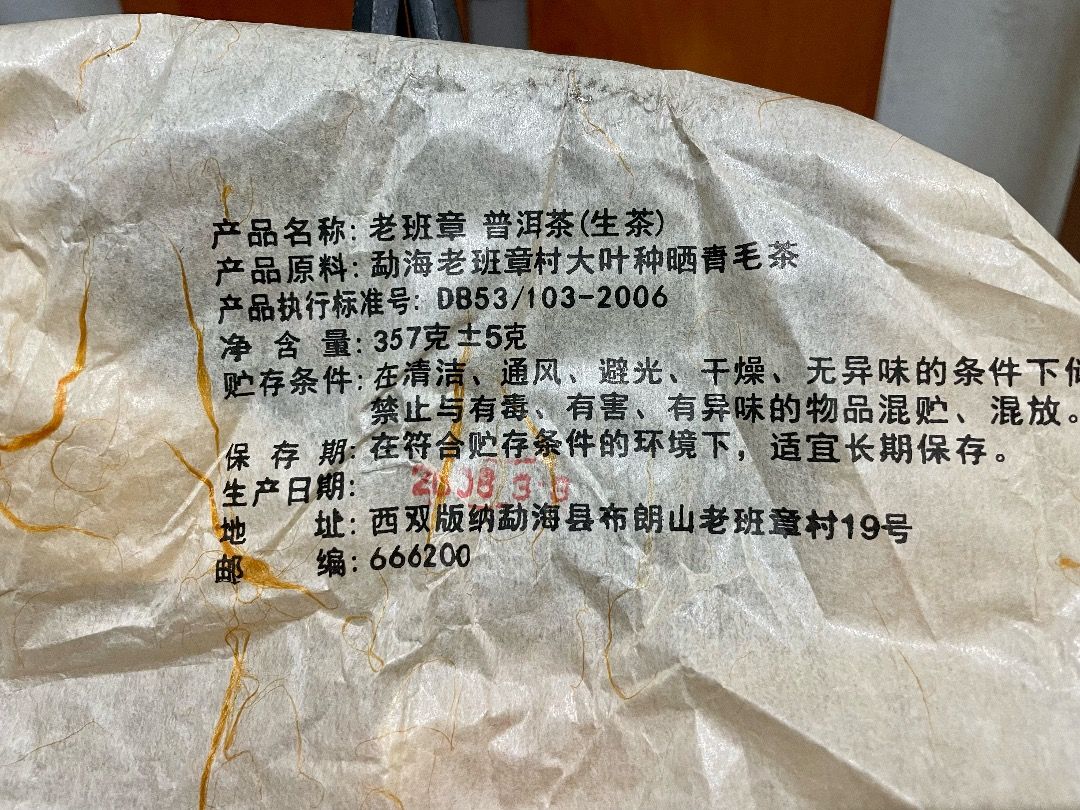 产品名称: 老班章 普洱茶(生茶)
产品原料: 勐海老班章村大叶种晒青毛茶
产品执行标准号: DB53/103-2006
净 含 量: 357克±5克
贮存条件: 在清洁、通风、避光、干燥、无异味的条件下
禁止与有毒、有害、有异味的物品混贮、混放。
保 存 期: 在符合贮存条件的环境下，适宜长期保存。
生产日期: 2008 3
地 址: 西双版纳勐海县布朗山老班章村19号
邮 编: 666200